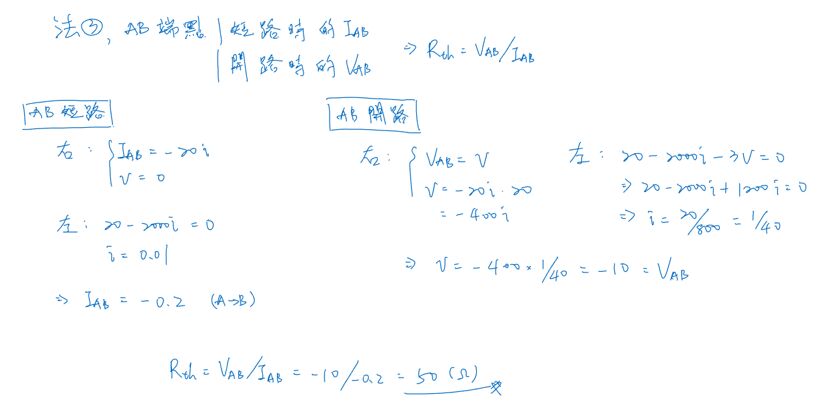 法③, AB端點 短路時的 I_AB
開路時的 V_AB ⇒ R_th = V_AB/I_AB
AB 短路
右: I_AB = -20i
V = 0
左: 20 - 2000i = 0
i = 0.01
⇒ I_AB = -0.2 (A→B)
AB 開路
右: V_AB = V
V = -20i · 20
= -400i
左: 20 - 2000i - 3V = 0
⇒ 20 - 2000i + 1200i = 0
⇒ i = 20/800 = 1/40
⇒ V = -400 × 1/40 = -10 = V_AB
R_th = V_AB/I_AB = -10/-0.2 = 50 (Ω)